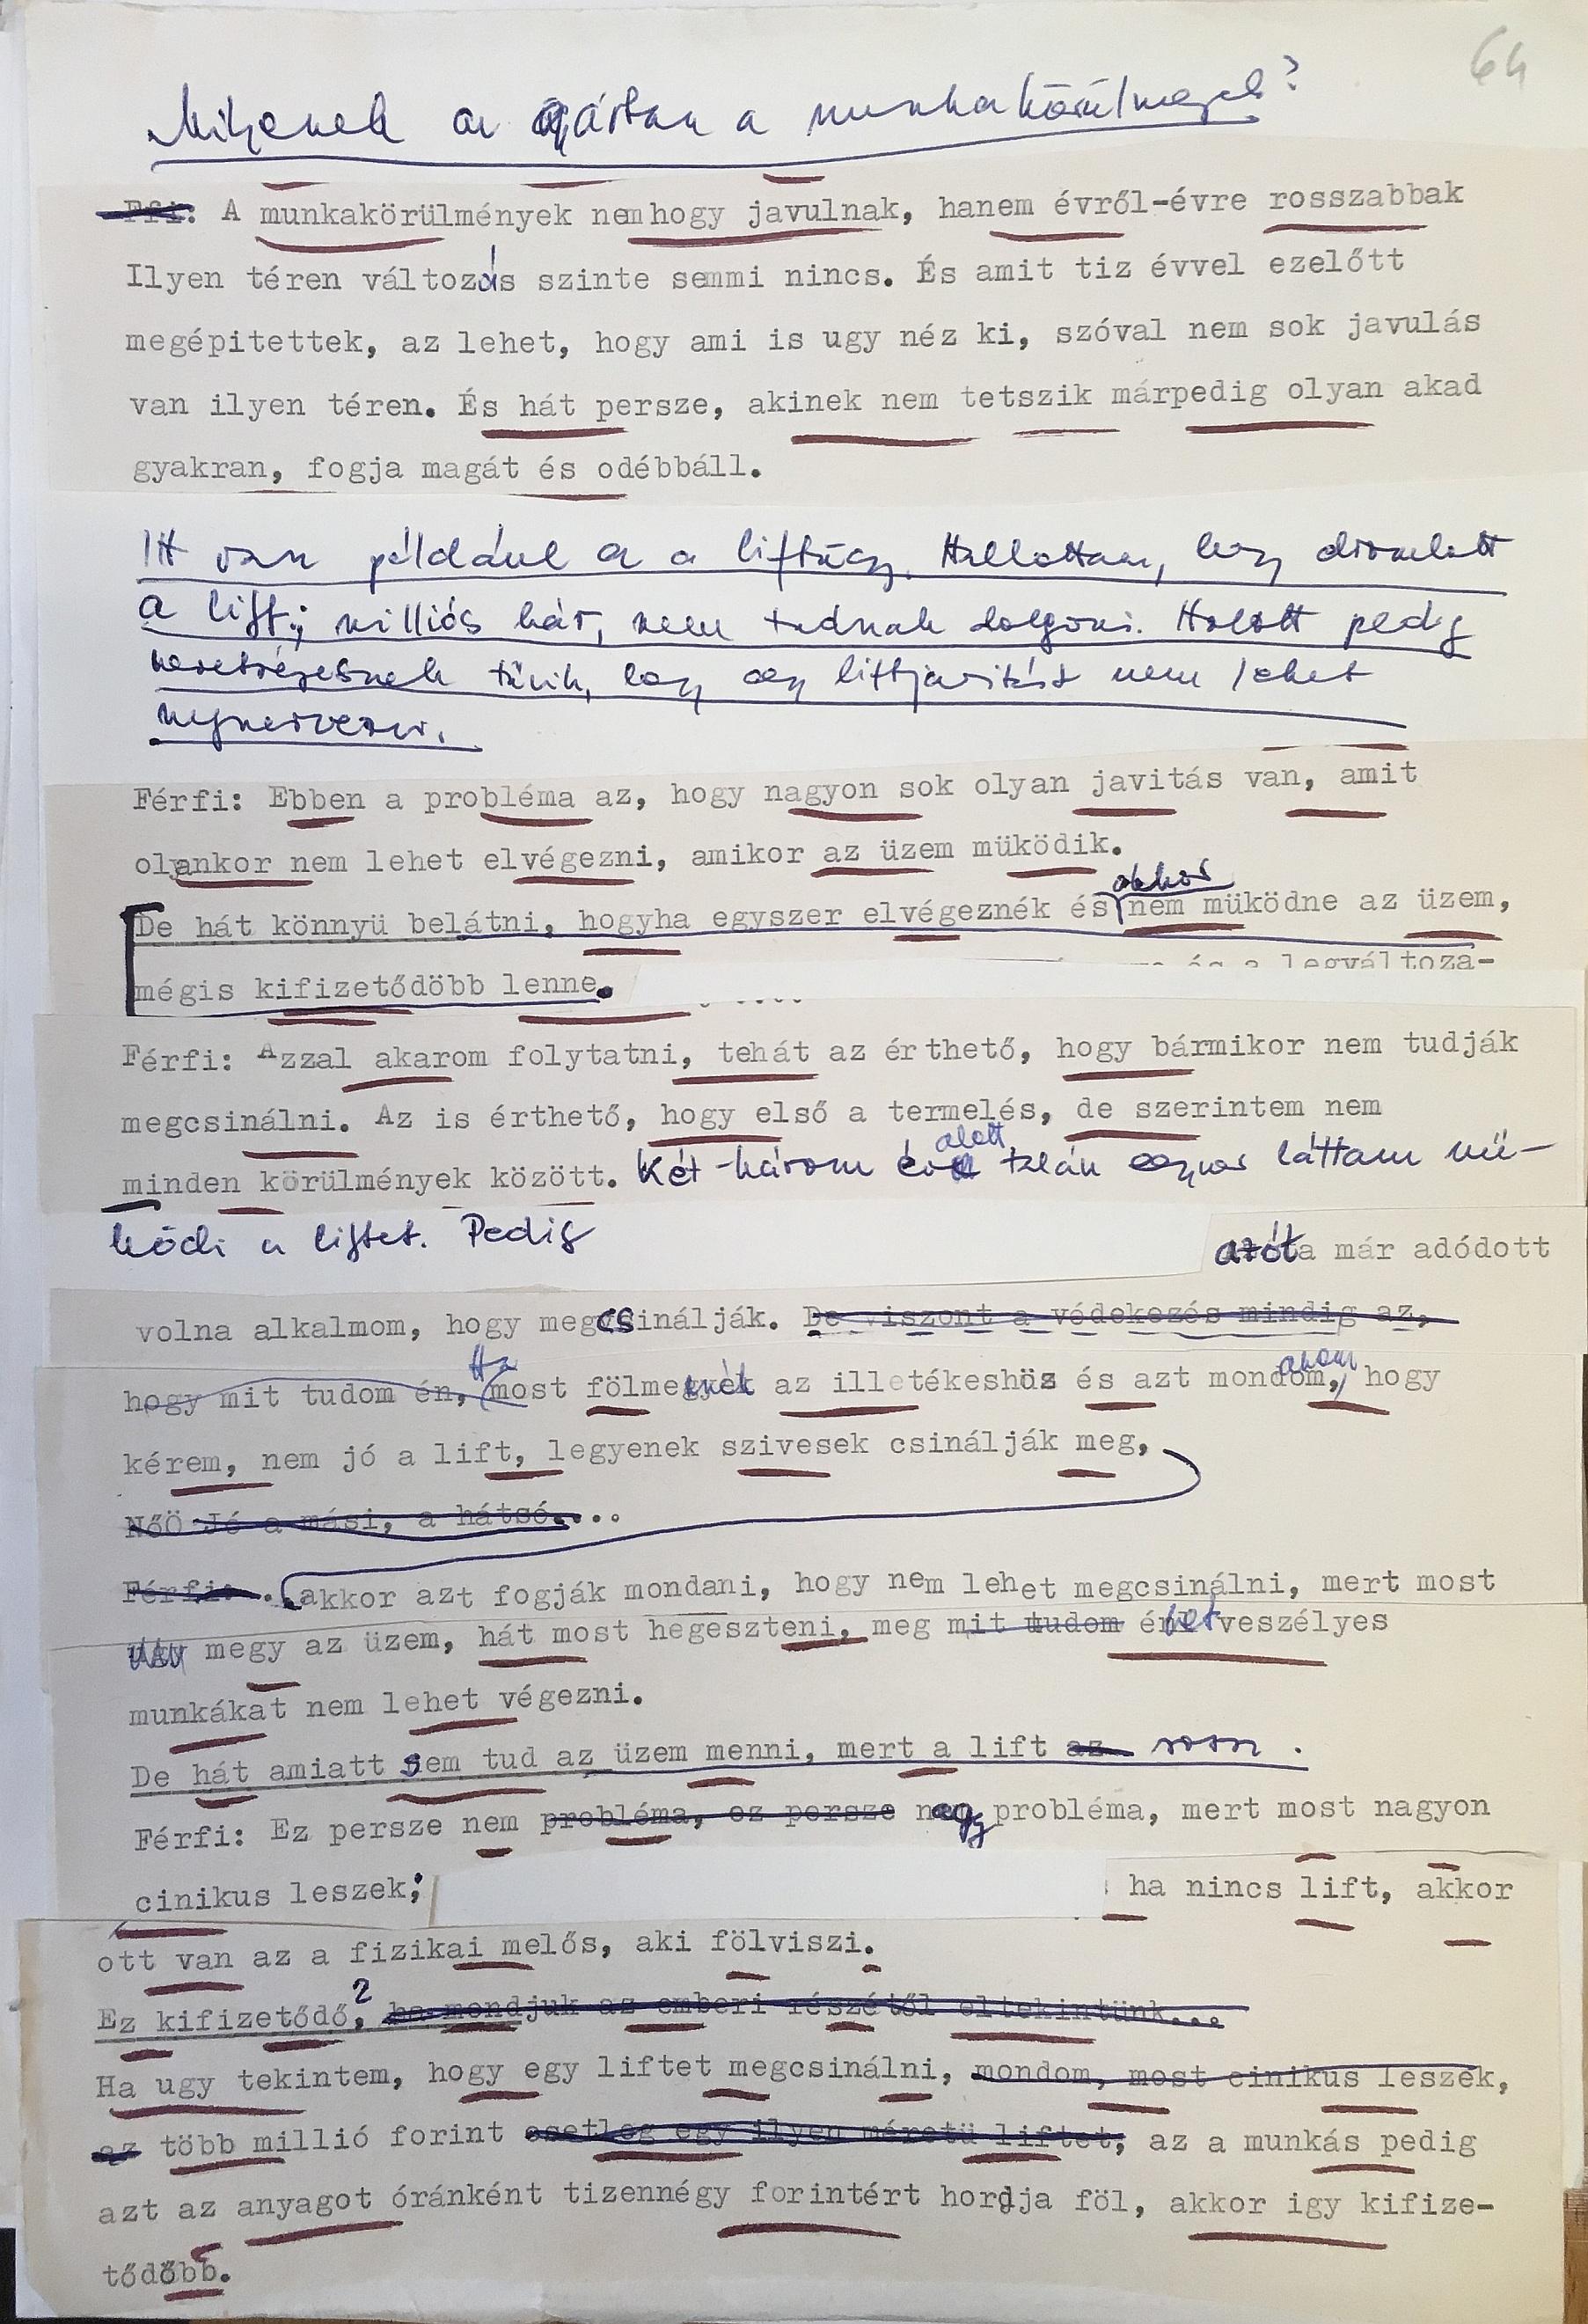 64
Milyenek a gyárban a munkakörülmények?
Ffi: A munkakörülmények nemhogy javulnak, hanem évről-évre rosszabbak
Ilyen téren változás szinte semmi nincs. És amit tiz évvel ezelőtt
megépitettek, az lehet, hogy ami is ugy néz ki, szóval nem sok javulás
van ilyen téren. És hát persze, akinek nem tetszik márpedig olyan akad
gyakran, fogja magát és odébbáll.
Itt van például a liftügy. Hallottam, hogy elromlott
a lift; milliós kár, nem tudnak dolgozni. Holott pedig
nevetségesnek tűnik, hogy egy liftjavitást nem lehet
megszervezni.
Férfi: Ebben a probléma az, hogy nagyon sok olyan javitás van, amit
olyankor nem lehet elvégezni, amikor az üzem müködik.
akkor
De hát könnyü belátni, hogyha egyszer elvégeznék és nem müködne az üzem,
és a legváltoza-
mégis kifizetődöbb lenne.
Férfi: Azzal akarom folytatni, tehát az érthető, hogy bármikor nem tudják
megcsinálni. Az is érthető, hogy első a termelés, de szerintem nem
alatt
minden körülmények között. Két-három év talán egyszer láttam mü-
ködni a liftet. Pedig azóta már adódott
volna alkalmom, hogy megcsinálják. De viszont a védekezés mindig az,
Ha ahom
hogy mit tudom én, most fölmegnék az illetékeshüz és azt mondom, hogy
kérem, nem jó a lift, legyenek szivesek csinálják meg,
NőÖ Jó a mási, a hátsó....
Férfi: ..akkor azt fogják mondani, hogy nem lehet megcsinálni, mert most
megy az üzem, hát most hegeszteni, meg mit tudom én életveszélyes
munkákat nem lehet végezni.
De hát amiatt sem tud az üzem menni, mert a lift az rossz.
Férfi: Ez persze nem probléma, ez persze nagy probléma, mert most nagyon
cinikus leszek; ha nincs lift, akkor
ott van az a fizikai melós, aki fölviszi.
Ez kifizetődő? ha mondjuk az emberi részétől eltekintünk...
Ha ugy tekintem, hogy egy liftet megcsinálni, mondom, most cinikus leszek,
az több millió forint esetleg egy ilyen méretü liftet, az a munkás pedig
azt az anyagot óránként tizennégy forintért hordja föl, akkor igy kifize-
tődőbb.